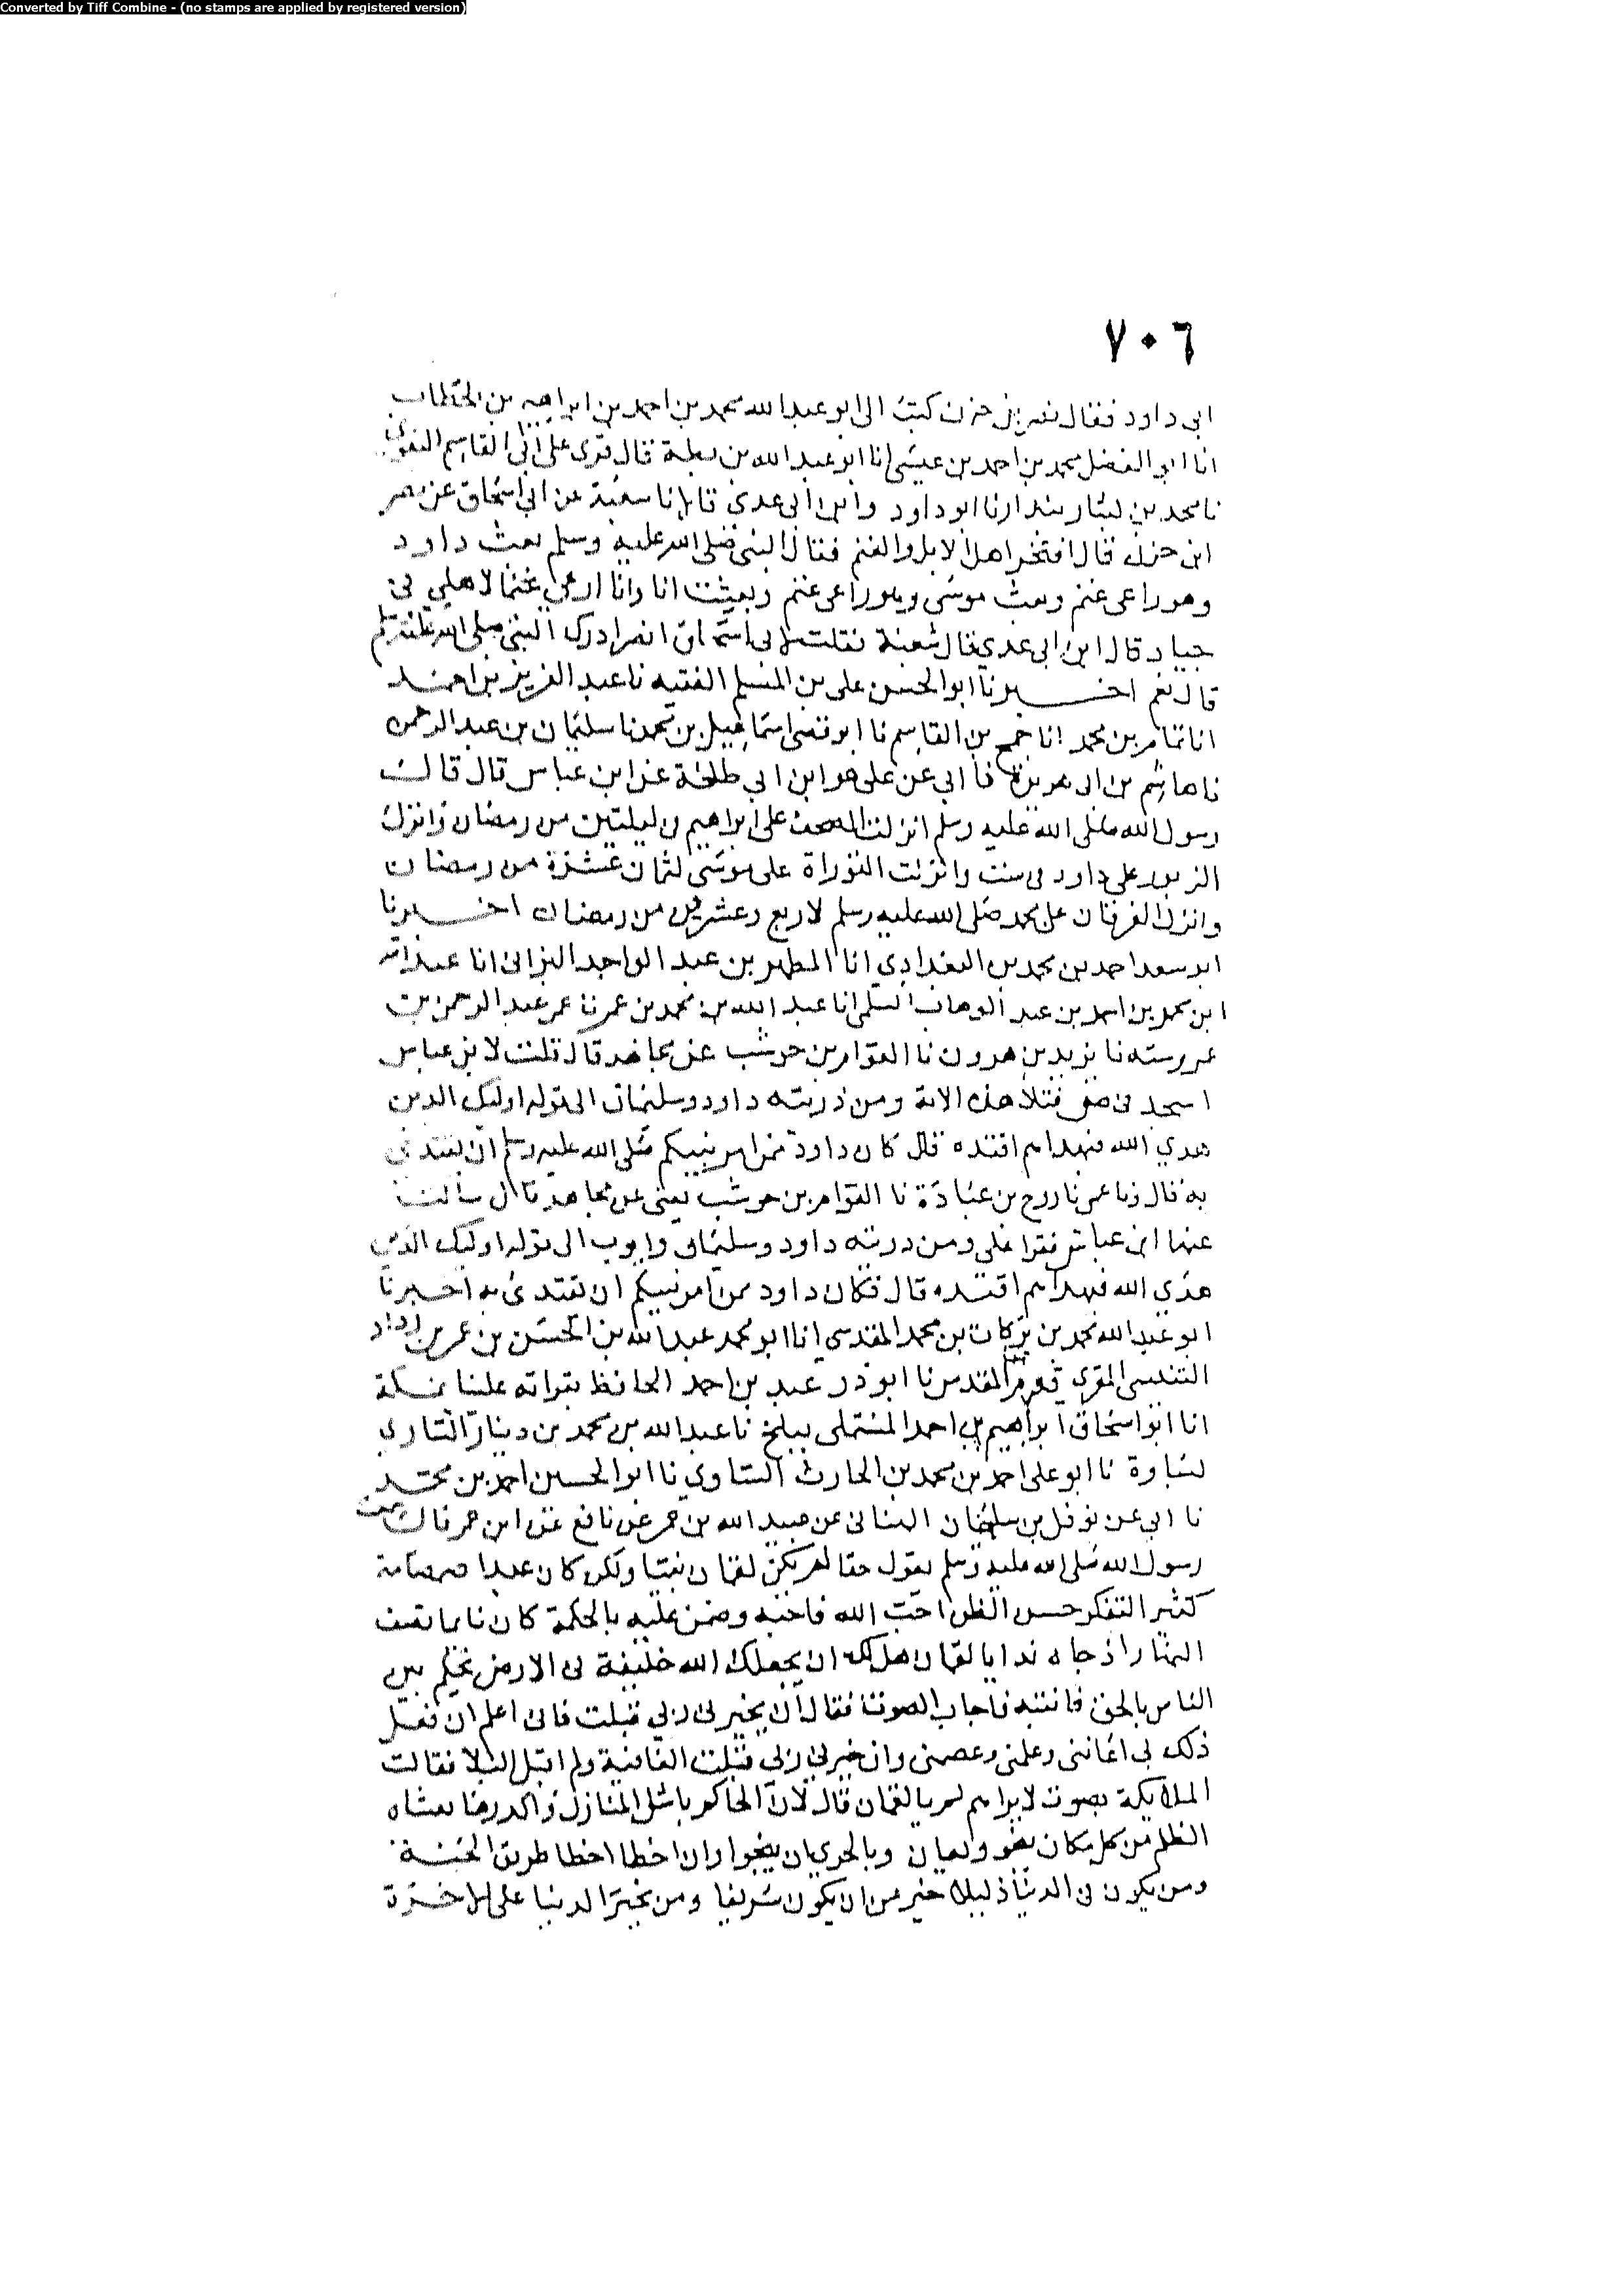 Converted by Tiff Combine - (no stamps are applied by registered version)
٧٠٦
ابى داود فقال نصر بن حزن كتب الى ابو عبد الله محمد بن احمد بن ابراهيم بن الخطاب
انا ابو الفضل محمد بن احمد بن عيسى انا ابو عبد الله بن بطة قال قرى على ابى القاسم البغوى
نا محمد بن بشار بندار نا ابو داود وابن ابى عدى قالا نا شعبة عن ابى اسحاق عن نصر
ابن حزن قال افتخر اهل الابل والغنم فقال النبى صلى الله عليه وسلم بعث داود
وهو راعى غنم وبعث موسى وهو راعى غنم وبعثت انا وانا ارعى غنما لاهلي فى
جياد قال ابن ابى عدي قال شعبة فقلت لابى اسحاق انصر ادرك النبى صلى الله عليه وسلم
قال نعم اخبرنا ابو الحسن على بن المسلم الفقيه نا عبد العزيز بن احمد
انا تمام بن محمد انا جمح بن القاسم نا ابو قصى اسماعيل بن محمد نا سليمان بن عبد الرحمن
نا هاشم بن ابى هريرة نا ابي عن على هو ابن ابي طلحة عن ابن عباس قال قال
رسول الله صلى الله عليه وسلم انزلت الصحف على ابراهيم فى ليلتين من رمضان وانزل
الزبور على داود فى ست وانزلت التوراة على موسى لثمان عشرة من رمضان
وانزل الفرقان على محمد صلى الله عليه وسلم لاربع وعشرين من رمضان اخبرنا
ابو سعد احمد بن محمد بن البغدادي انا المطهر بن عبد الواحد البزانى انا عبد الله
ابن محمد بن احمد بن عبد الوهاب السلمى انا عبد الله بن محمد بن عمر نا عمر عبد الرحمن بن
عمر رسته نا يزيد بن هرون نا العوام بن حوشب عن مجاهد قال قلت لابن عباس
اسجد فى ص فتلا هذه الاية ومن ذريته داود وسليمان الى قوله اوليك الذين
هدي الله فبهداهم اقتده قال كان داود ممن امر نبيكم صلى الله عليه وسلم ان يقتدى
به قال ونا عمر نا روح بن عبادة نا العوام بن حوشب يعنى عن مجاهد قال سالت
عنها ابن عباس فقرا على ومن ذريته داود وسليمان وايوب الى قوله اوليك الذين
هدي الله فبهداهم اقتده قال فكان داود ممن امر نبيكم ان يقتدى به اخبرنا
ابو عبد الله محمد بن بركات بن محمد المقدسي انا ابو محمد عبد الله بن الحسن بن عمر بن رداد
التنيسى المقرى المقدس نا ابو ذر عبد بن احمد الحافظ بقراته علينا بمكة
انا ابو اسحاق ابراهيم بن احمد المستملى ببلخ نا عبد الله بن محمد بن دينار الساوي
بساوة نا ابو على احمد بن محمد بن الحارث الساوي نا ابو الحسين احمد بن محمد
نا ابي عن نوفل بن سليمان الهنائى عن عبيد الله بن عمر عن نافع عن ابن عمر قال سمعت
رسول الله صلى الله عليه وسلم يقول حقا لم يكن لقمان نبيا ولكن كان عبدا صمصامة
كثير التفكر حسن الظن احب الله فاحبه وضمن عليه بالحكمة كان نايما نصف
النهار اذ جاه ندا يا لقمان هل لك ان يجعلك الله خليفة فى الارض تحكم بين
الناس بالحق فانتبه فاجاب الصوت فقال ان يخيرنى ربي قبلت فانى اعلم ان فعل
ذلك بى اعاننى وعلمنى وعصمنى وان خيرنى ربى قبلت العافية ولم اقبل البلا فقالت
الملايكة بصوت لا يراهم لم يا لقمان قال لان الحاكم باشد المنازل واكدرها يغشاه
الظلم من كل مكان ينجو ويعان وبالحري ان ينجو وان اخطا اخطا طريق الجنة
ومن يكون فى الدنيا ذليلا خير من ان يكون شريفا ومن يخير الدنيا على الاخرة